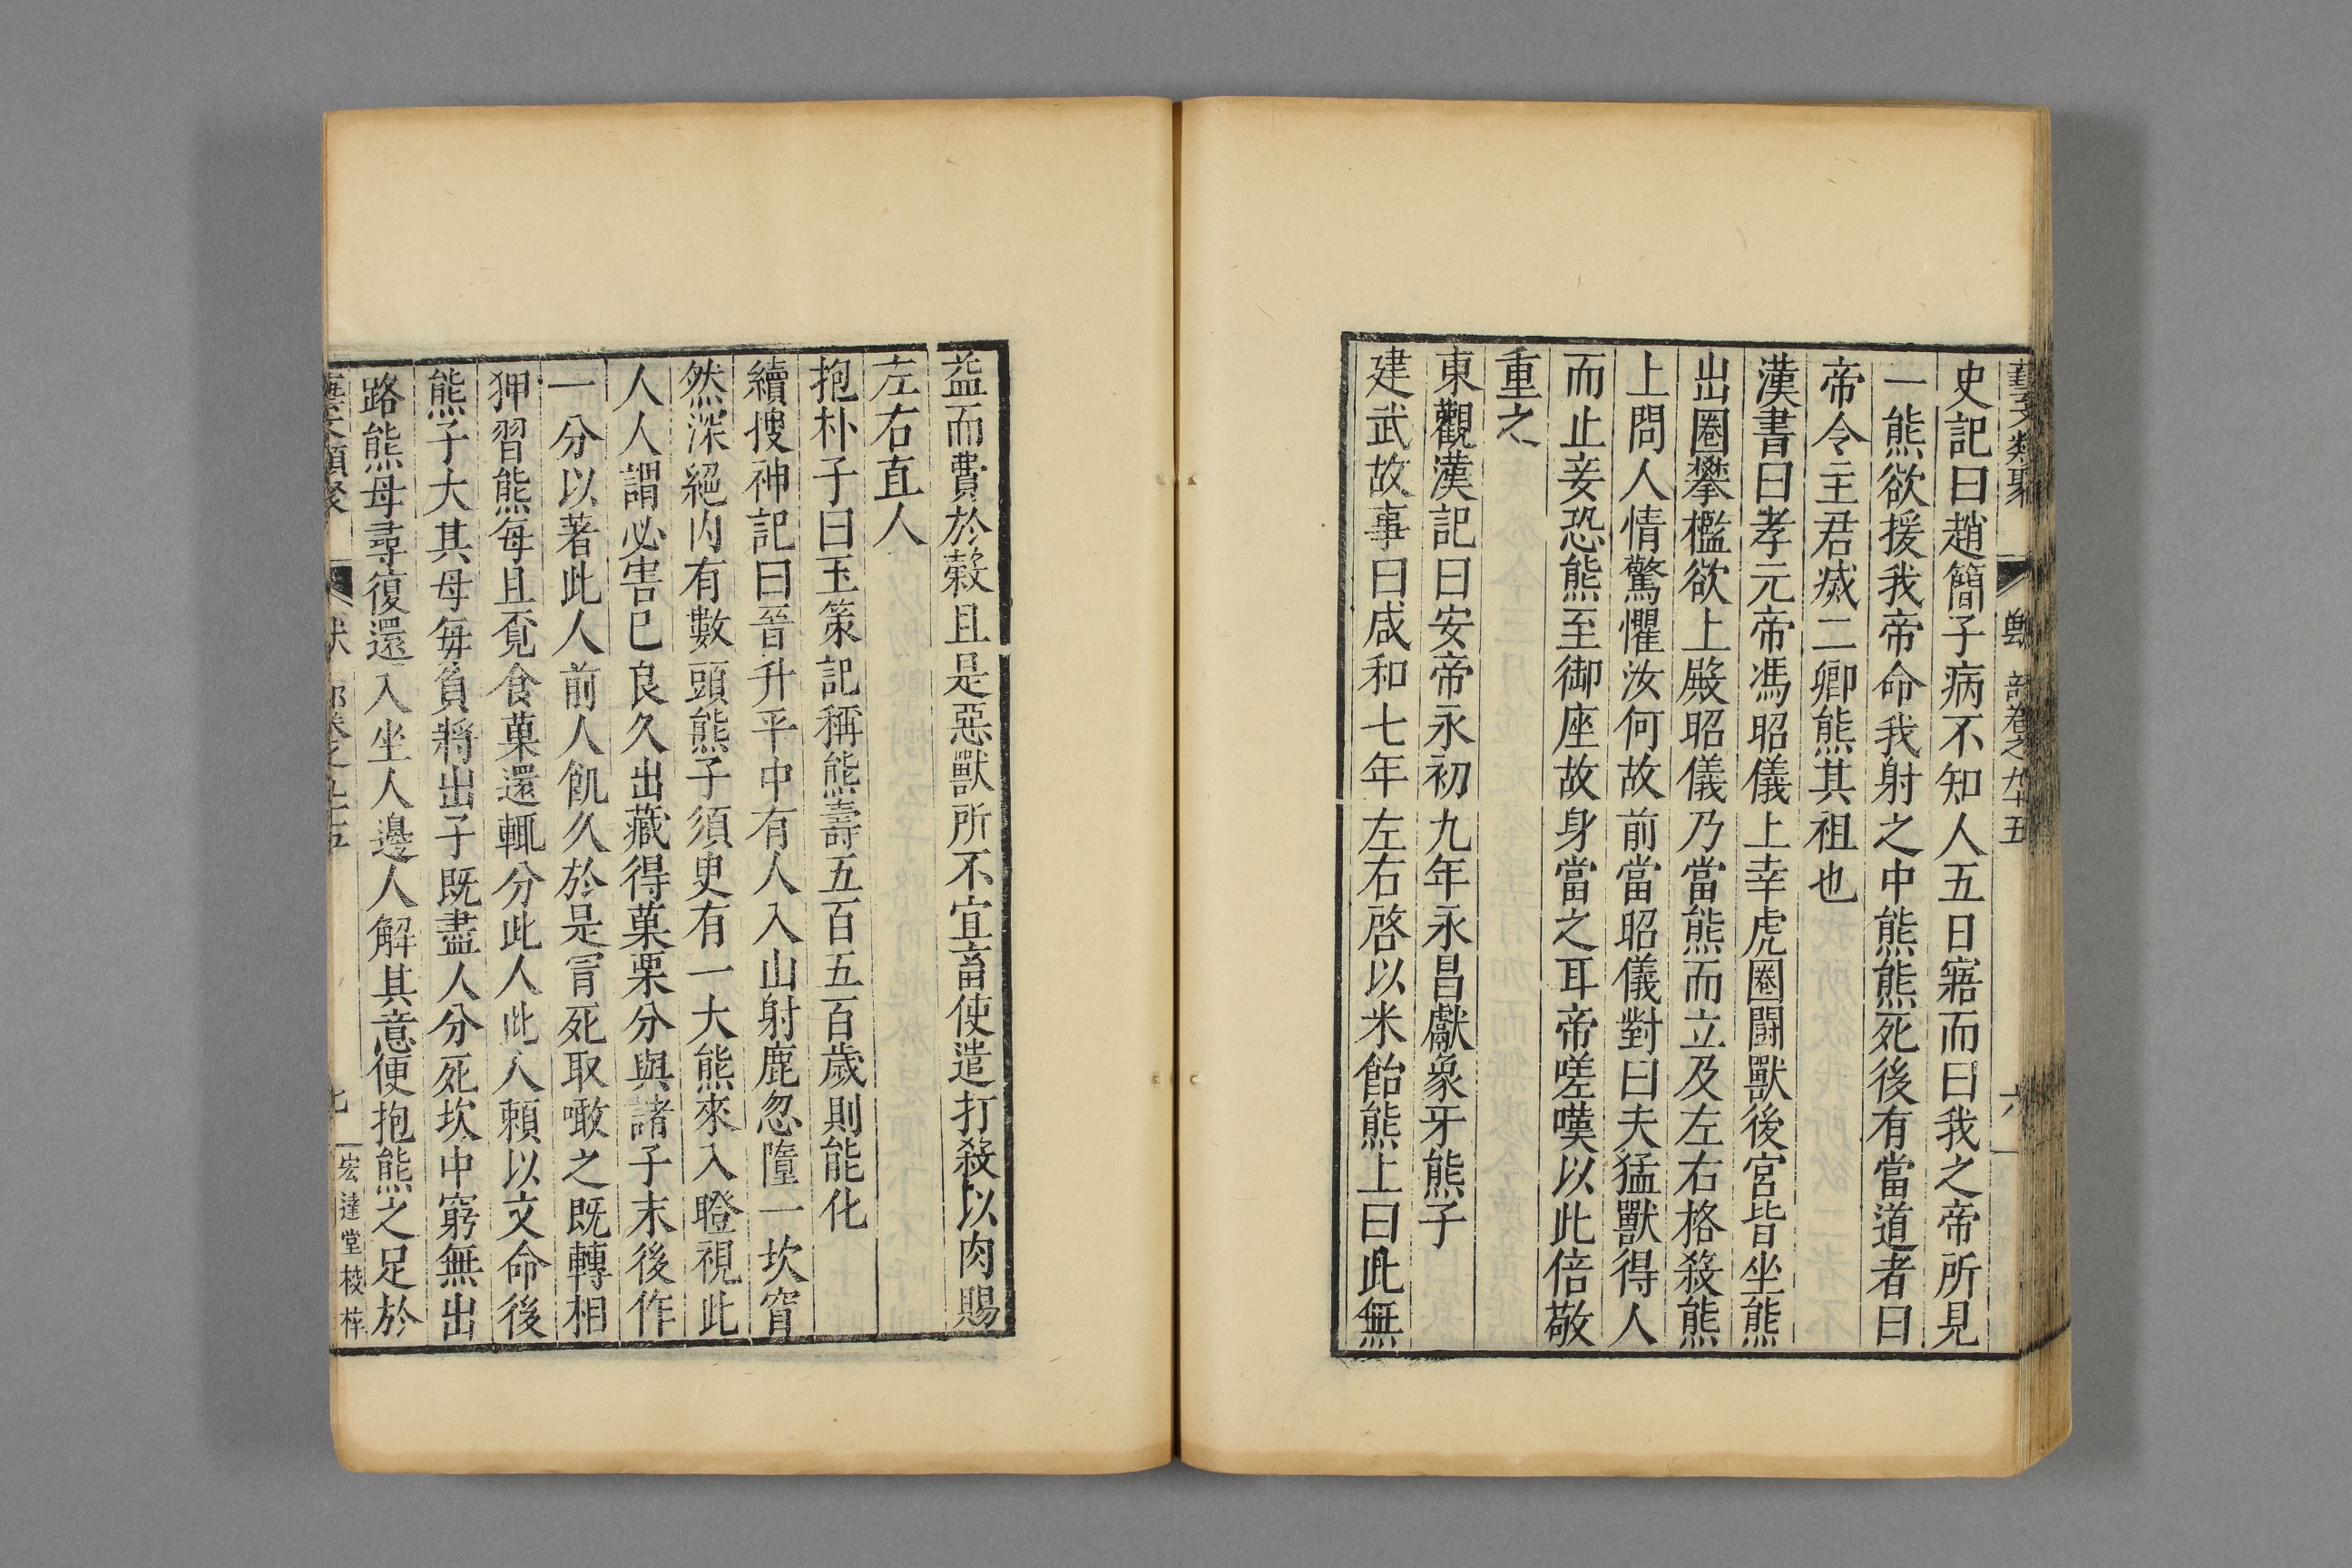 藝文類聚 獸 部卷之九十五 六
史記曰趙簡子病不知人五日寤而曰我之帝所見
一熊欲援我帝命我射之中熊熊死後有當道者曰
帝令主君滅二卿熊其祖也
漢書曰孝元帝馮昭儀上幸虎圈鬪獸後宮皆坐熊
出圈攀檻欲上殿昭儀乃當熊而立及左右格殺熊
上問人情驚懼汝何故前當昭儀對曰夫猛獸得人
而止妾恐熊至御座故身當之耳帝嗟嘆以此倍敬
重之
東觀漢記曰安帝永初九年永昌獻象牙熊子
建武故事曰咸和七年左右啓以米飴熊上曰此無
益而費於穀且是惡獸所不宜畜使遣打殺以肉賜
左右直人
抱朴子曰玉策記稱熊壽五百五百歲則能化
續搜神記曰晉升平中有人入山射鹿忽墮一坎窅
然深絕内有數頭熊子須史有一大熊來入瞪視此
人人謂必害巳良久出藏得菓栗分與諸子末後作
一分以著此人前人飢久於是冐死取噉之既轉相
狎習熊每旦覓食菓還輒分此人此人賴以支命後
熊子大其母每負將出子既盡人分死坎中窮無出
路熊母尋復還入坐人邊人解其意便抱熊之足於
藝文類聚 獸 部卷之九十五 七 宏達堂校梓